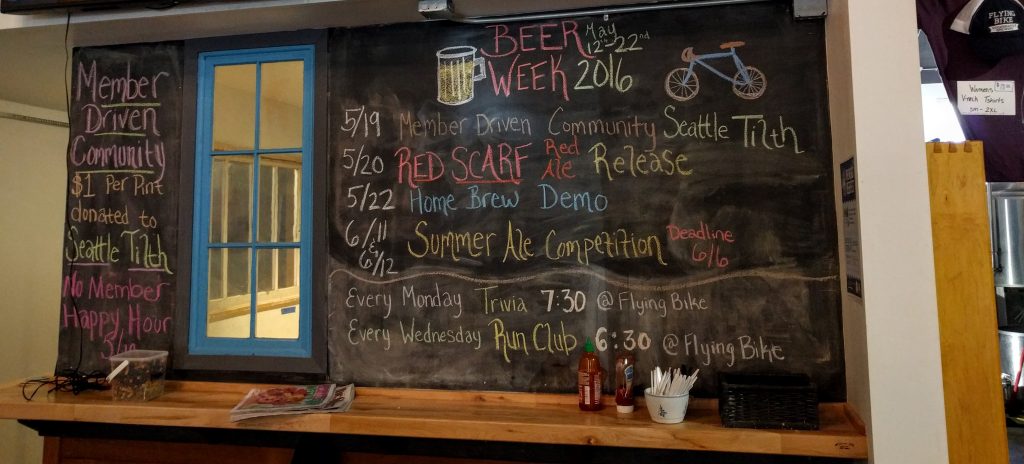 Member
Driven
Community
$1 Per Pint
donated to
Seattle Tilth
No Member
Happy Hour
BEER
WEEK
May
12th-22nd
2016
5/19 Member Driven Community Seattle Tilth
5/20 RED SCARF Red Ale Release
5/22 Home Brew Demo
6/11 & 6/12 Summer Ale Competition Deadline 6/6
Every Monday Trivia 7:30 @ Flying Bike
Every Wednesday Run Club 6:30 @ Flying Bike
FLYING
BIKE
Womens
V-neck Tshirts
sm-2XL